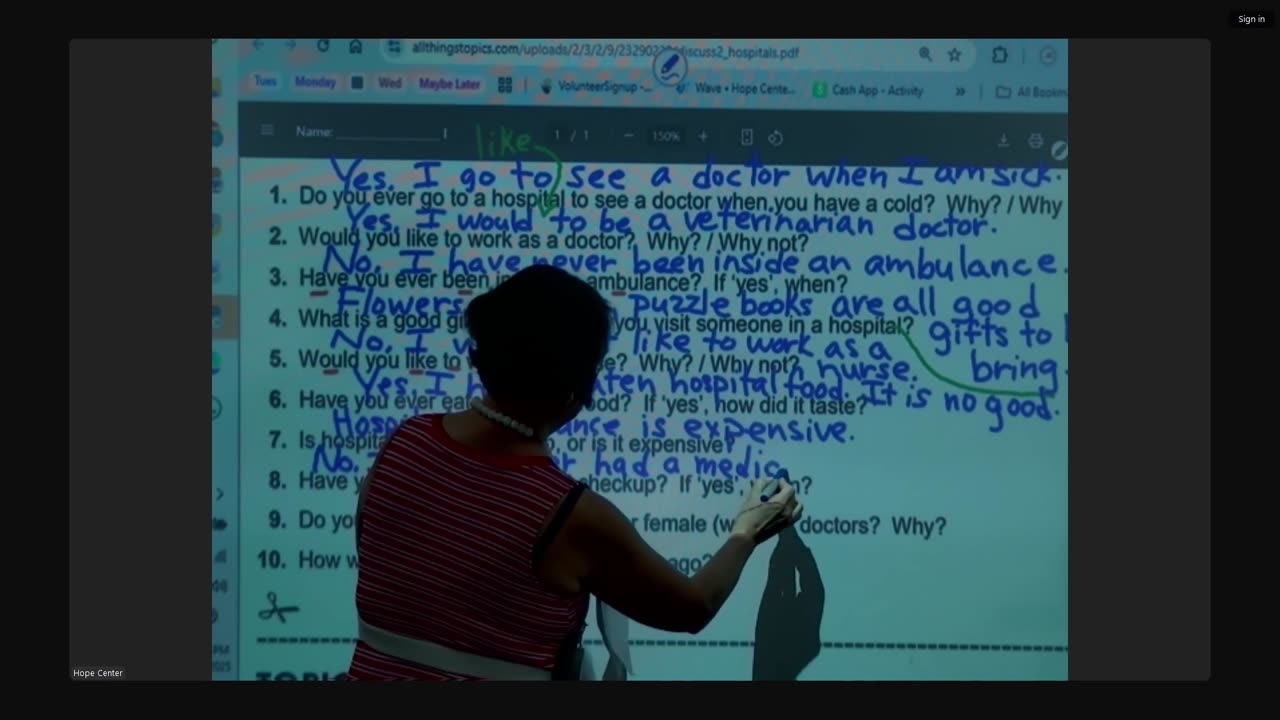 Sign in
allthingstopics.com/uploads/2/3/2/9/ discuss2_hospitals.pdf
Tues Monday Wed Maybe Later VolunteerSignup -... Wave • Hope Cente... Cash App - Activity » All Bookm
Name: 1 / 1 − 150% +
like
Yes. I go to see a doctor when I am sick.
1. Do you ever go to a hospital to see a doctor when you have a cold? Why? / Why
Yes. I would to be a veterinarian doctor.
2. Would you like to work as a doctor? Why? / Why not?
No. I have never been inside an ambulance.
3. Have you ever been ambulance? If 'yes', when?
Flowers puzzle books are all good
4. What is a good you visit someone in a hospital? gifts to
No. I like to work as a
bring
5. Would you like to Why? / Why not? nurse.
Yes. I hospital food. It is no good.
6. Have you ever If 'yes', how did it taste?
is expensive.
7. Is or is it expensive?
No. had a medic
8. Have checkup? If 'yes',
9. Do female doctors? Why?
10. How ago?
PM
2025
Hope Center